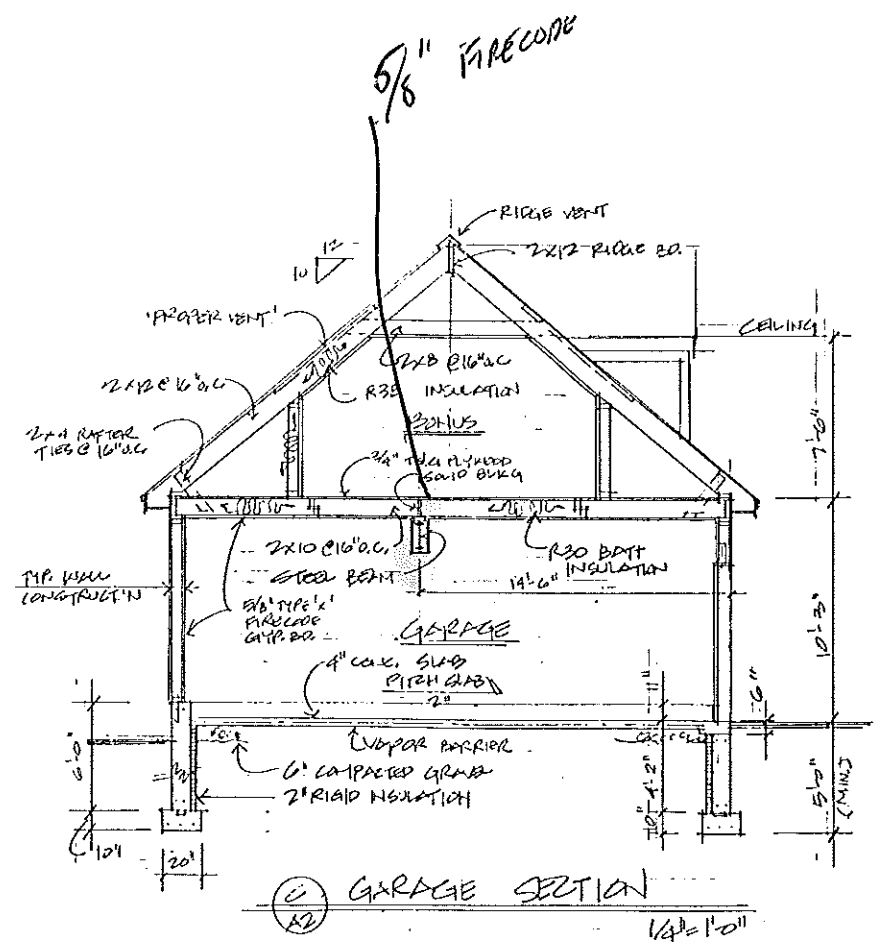 5/8" FIRECODE
RIDGE VENT
12
10
2X12 RIDGE BD.
'PROPER VENT'
CEILING
2X8 @16"O.C.
2X12 @ 16"O.C.
INSULATION
2X4 RAFTER
TIES @ 16"O.C.
BONUS
7'-6"
3/4" T&G PLYWOOD
SOLID BLKG
2X10 @16"O.C.
R30 BATT
INSULATION
STEEL BEAM
14'-6"
TYP. WALL
CONSTRUCT'N
5/8" TYPE 'X'
FIRECODE
GYP. BD.
GARAGE
10'-3"
4" CONC. SLAB
PITCH SLAB
2"
11"
6"
VAPOR BARRIER
6" COMPACTED GRAVEL
2" RIGID INSULATION
6'-0"
4'-2"
10"
5'-0"
(MIN.)
10"
20"
C
A2
GARAGE SECTION
1/4"=1'-0"